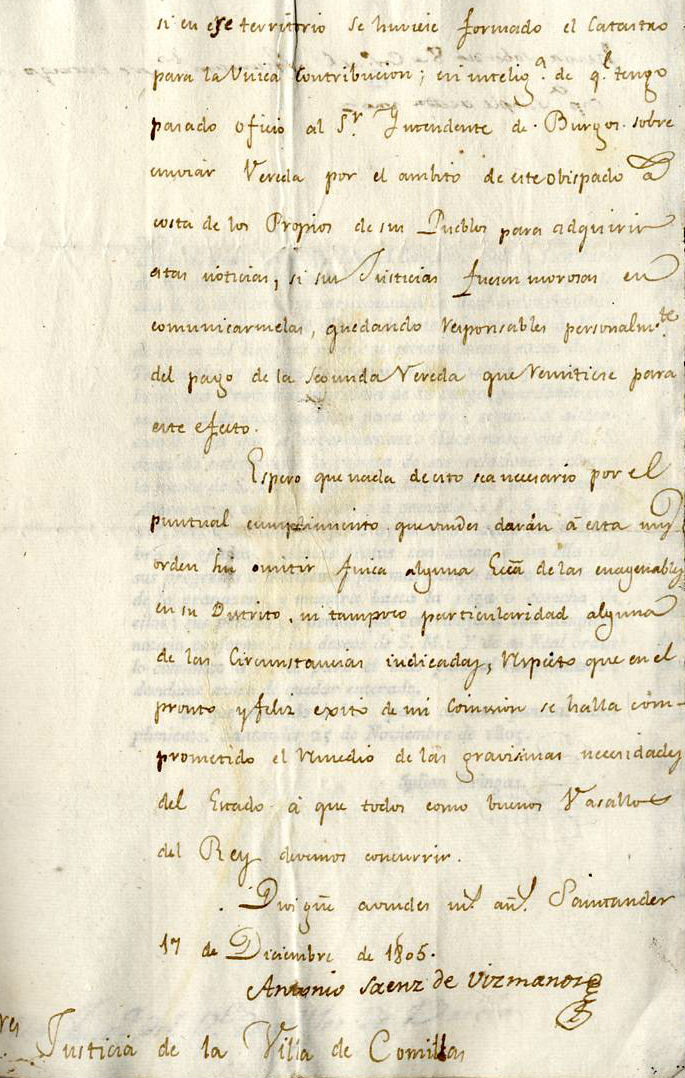 si en ese territorio se huviese formado el Catastro
para la Unica Contribucion; en intelig.ª de q.e tengo
pasado oficio al S.r Yntendente de Burgos sobre
enviar Vereda por el ambito de este obispado a
costa de los Propios de sus Pueblos para adquirir
estas noticias, si sus Justicias fuesen morosas en
comunicarmelas, quedando responsables personalm.te
del pago de la segunda Vereda que remitiese para
este efecto.
Espero que nada de esto sea necesario por el
puntual cumplimiento que vmdes darán á esta my
orden sin omitir finca alguna Ecca de las enagenables
en su Distrito, ni tampoco particularidad alguna
de las Circunstancias indicadas, respecto que en el
pronto y feliz exito de mi Comision se halla com-
prometido el remedio de las gravisimas necesidades
del Estado á que todos como buenos Vasallos
del Rey devemos concurrir.
Dios gũe a vmdes m.s añ.s Santander
17 de Diciembre de 1805.
Antonio Saenz de Vizmanos
res Justicia de la Villa de Comillas